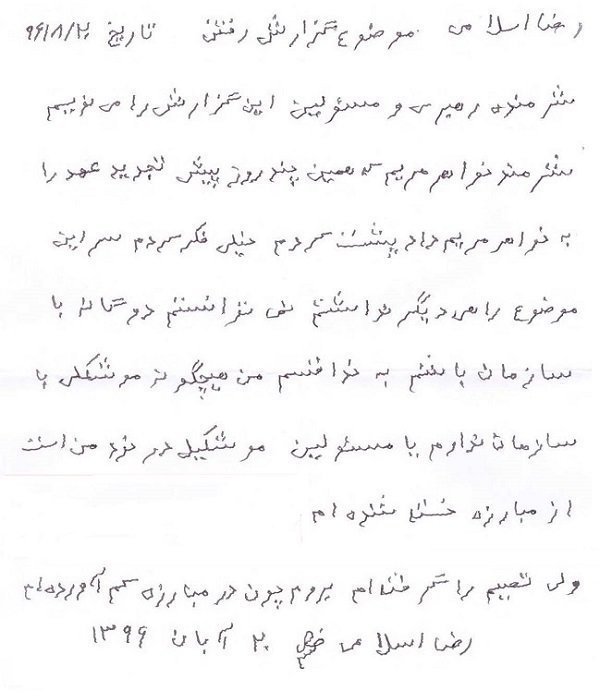 رضا اسلامی موضوع گزارش رفتن تاریخ ۹۶/۸/۲۰
شرمنده رهبری و مسئولین این گزارش را می نویسم
شرمنده خواهر مریم که همین چند روز پیش تجدید عهد را
به خواهر مریم داد پشت کردم خیلی فکر کردم سر این
موضوع راهی دیگر نداشتم نمی توانستم دوگانه با
سازمان باشم به خدا قسم من هیچگونه مشکلی با
سازمان ندارم یا مسئولین مشکل در خود من است
از مبارزه خسته شده ام
ولی تصمیم را گرفته ام بروم چون در مبارزه کم آورده ام
رضا اسلامی ۲۰ آبان ۱۳۹۶